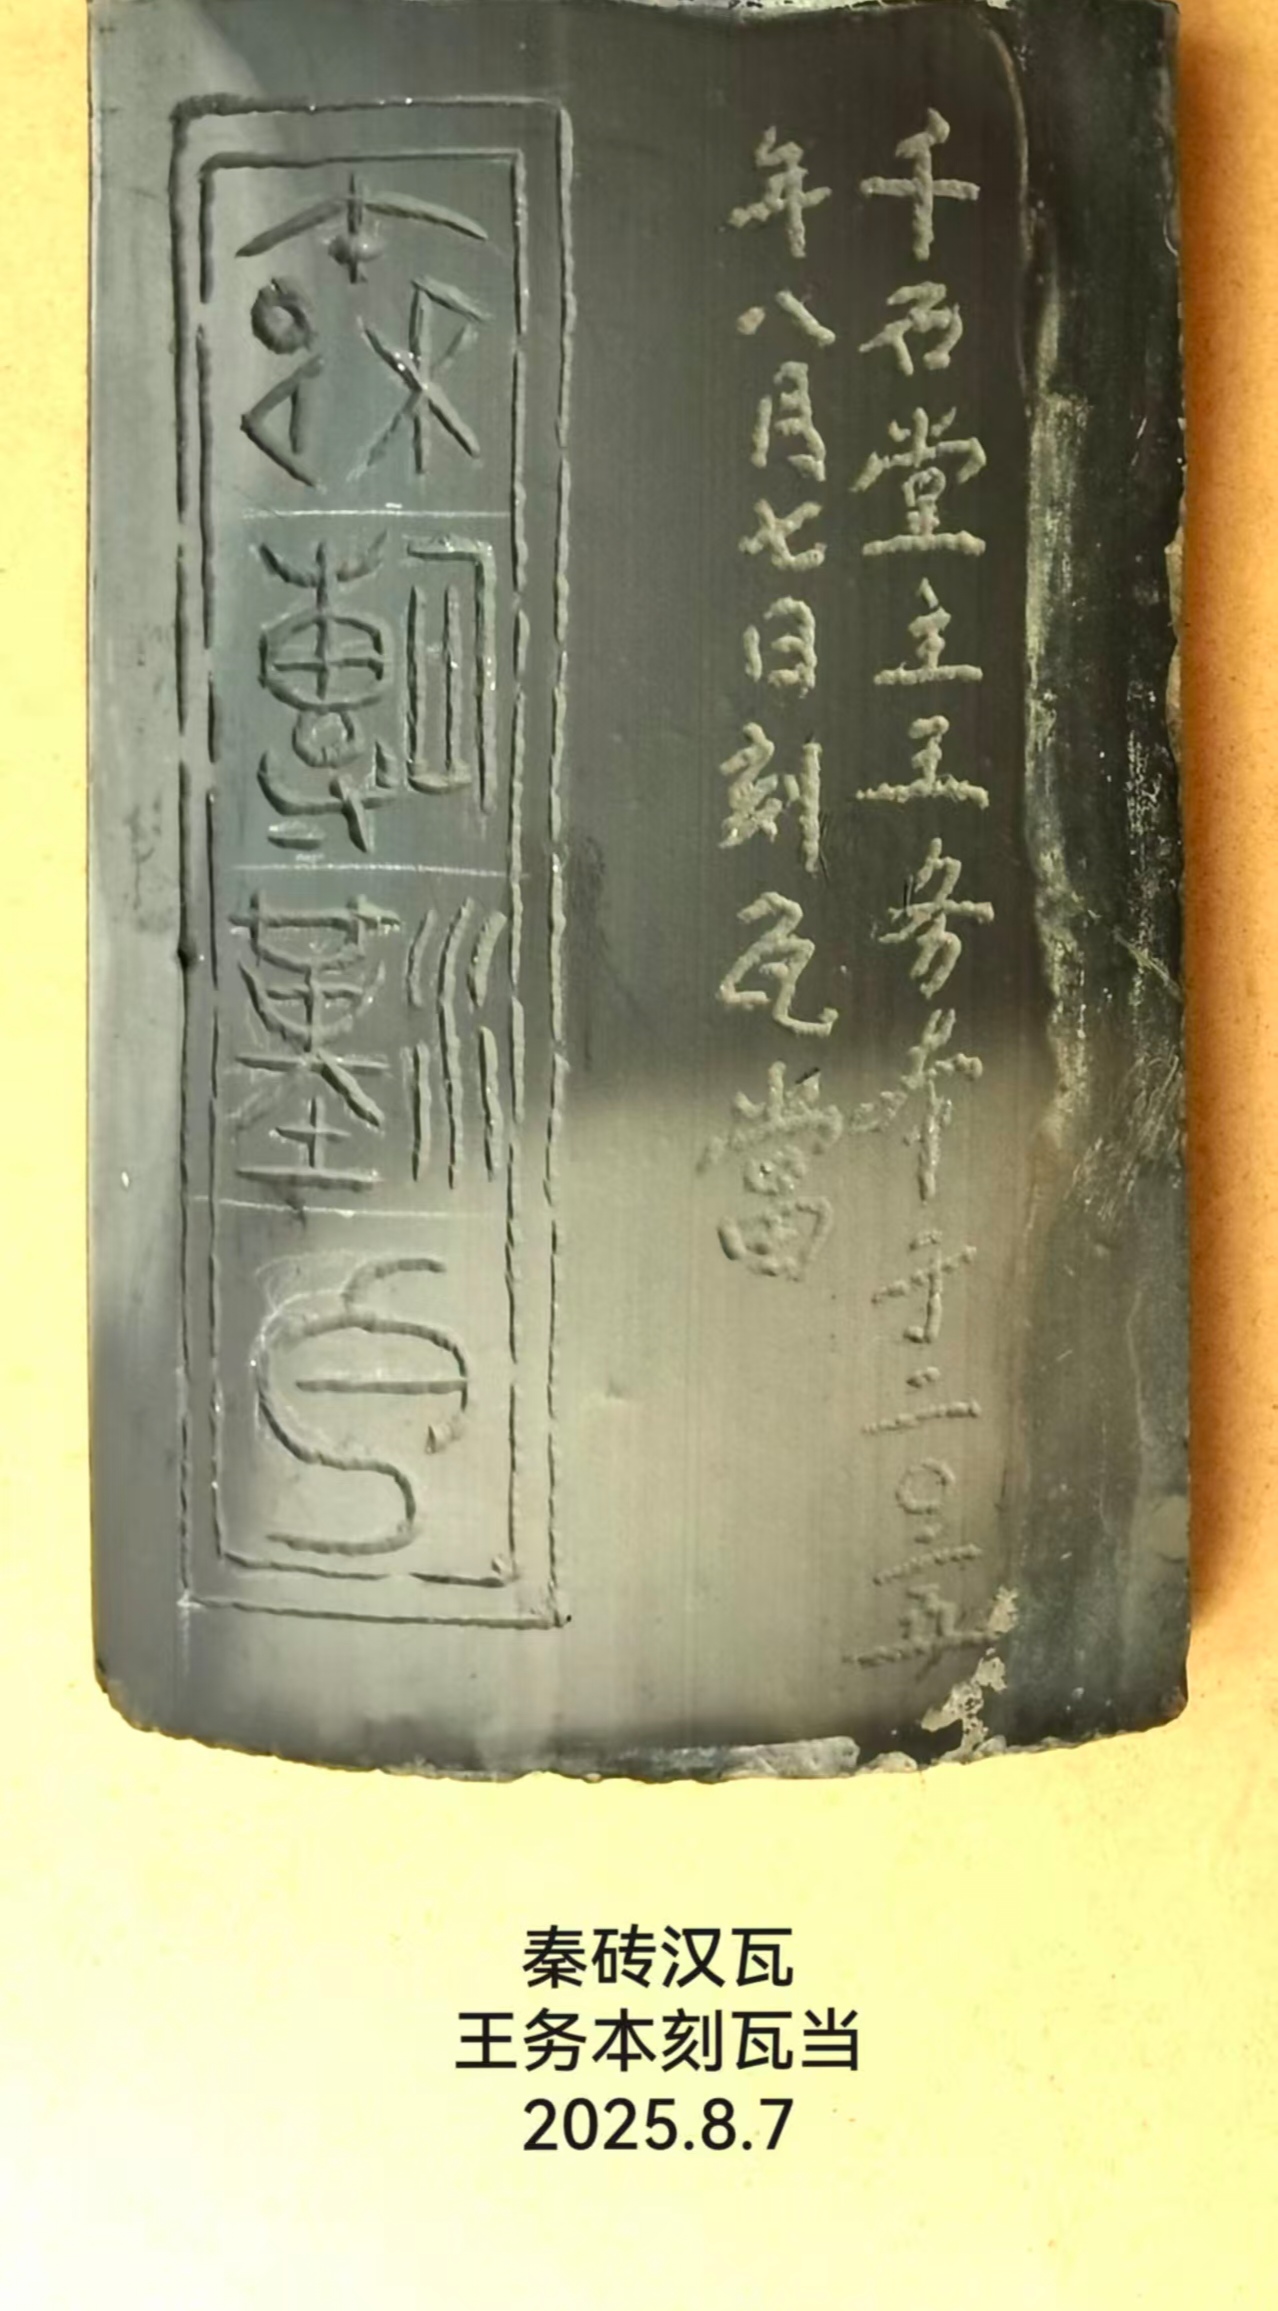 千石堂主王务本于二〇二五
年八月七日刻瓦當
秦磚漢瓦
秦砖汉瓦
王务本刻瓦当
2025.8.7